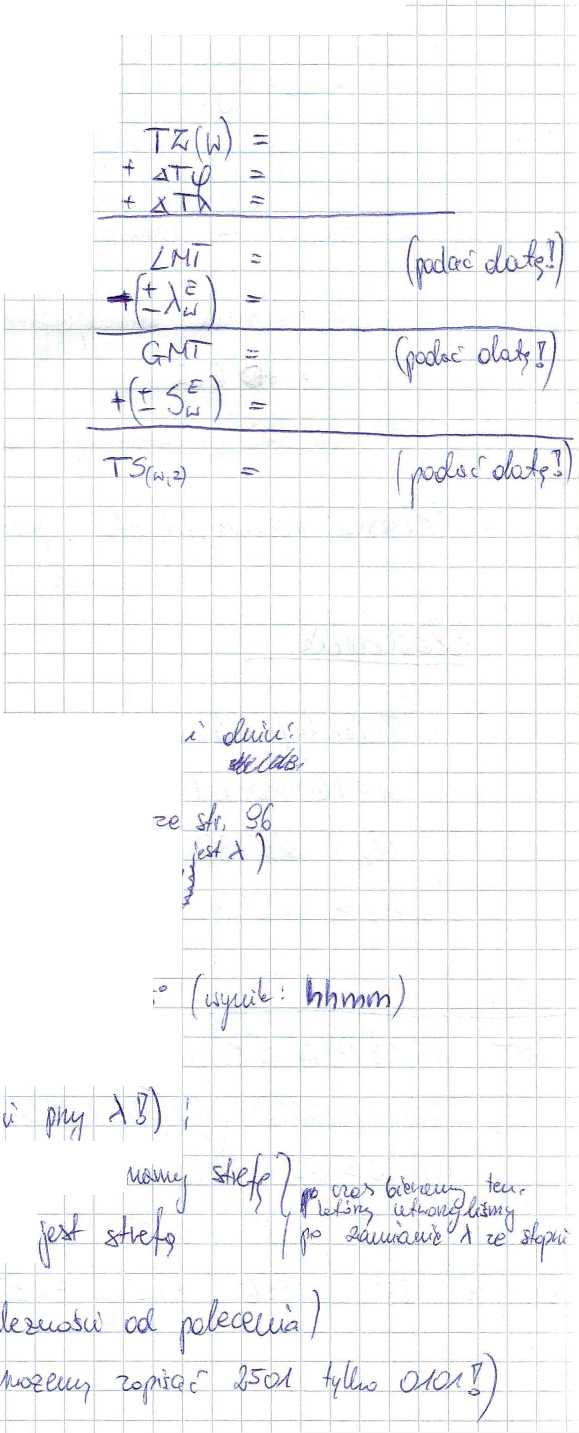 TZ(W) =
+ ΔTφ =
+ ΔTλ =
LMT = (podać datę!)
+(± λ E W) =
GMT = (podać datę!)
+(± S E W) =
TS(W,Z) = (podać datę!)
i dniu:
ze str. 96
jest λ)
(wynik: hhmm)
przy λ!) ;
mamy strefę
jest strefą
po czas bierzemy ten,
który otrzymaliśmy
po zamianie λ ze stopni
leżności od polecenia)
możemy zapisać 2501 tylko 0101!)